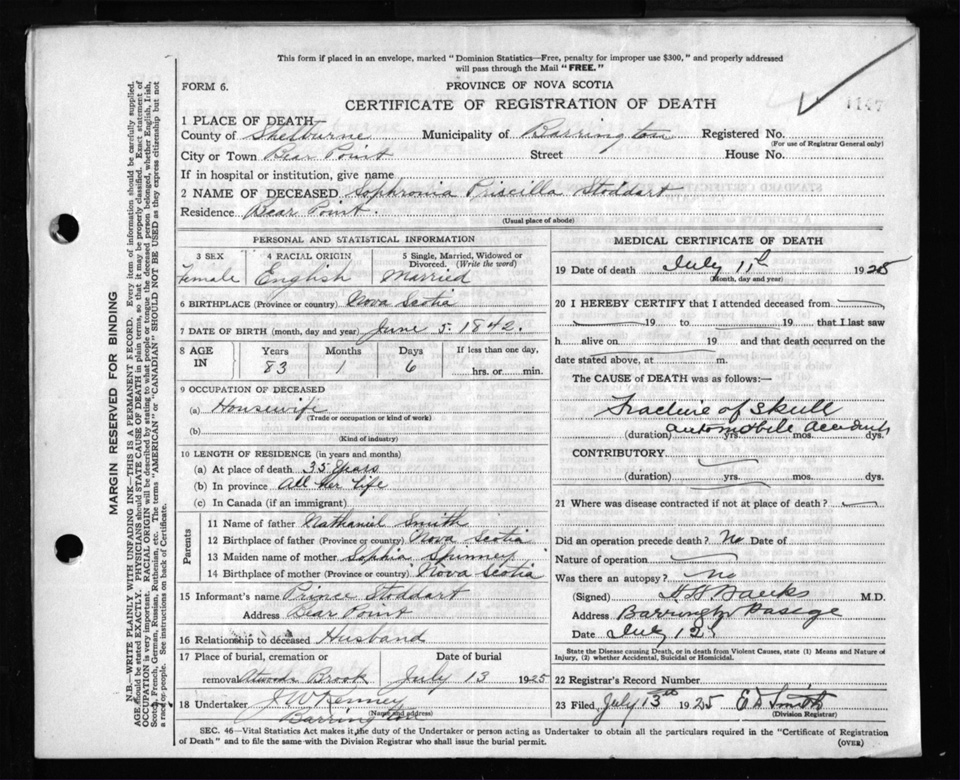 This form if placed in an envelope, marked "Dominion Statistics—Free, penalty for improper use $300," and properly addressed
will pass through the Mail "FREE."
FORM 6.
PROVINCE OF NOVA SCOTIA
CERTIFICATE OF REGISTRATION OF DEATH
1147
1 PLACE OF DEATH
County of Shelburne Municipality of Barrington Registered No.
(For use of Registrar General only)
City or Town Bear Point Street House No.
If in hospital or institution, give name
2 NAME OF DECEASED Sophronia Priscilla Stoddart
Residence Bear Point.
(Usual place of abode)
PERSONAL AND STATISTICAL INFORMATION
3 SEX 4 RACIAL ORIGIN 5 Single, Married, Widowed or
Divorced. (Write the word)
Female English Married
6 BIRTHPLACE (Province or country) Nova Scotia
7 DATE OF BIRTH (month, day and year) June 5. 1842.
8 AGE IN Years Months Days If less than one day,
83 1 6 hrs. or min.
9 OCCUPATION OF DECEASED
(a) Housewife
(Trade or occupation or kind of work)
(b)
(Kind of industry)
10 LENGTH OF RESIDENCE (in years and months)
(a) At place of death 35 years
(b) In province All Her Life
(c) In Canada (if an immigrant)
Parents
11 Name of father Nathaniel Smith
12 Birthplace of father (Province or country) Nova Scotia
13 Maiden name of mother Sophia Spinney
14 Birthplace of mother (Province or country) Nova Scotia
15 Informant's name Prince Stoddart
Address Bear Point
16 Relationship to deceased Husband
17 Place of burial, cremation or Date of burial
removal Atwoods Brook July 13 1925
18 Undertaker J W Kenney
(Name and address)
Barrington
MEDICAL CERTIFICATE OF DEATH
19 Date of death July 11th 1925
(Month, day and year)
20 I HEREBY CERTIFY that I attended deceased from
19 to 19 that I last saw
h alive on 19 and that death occurred on the
date stated above, at m.
The CAUSE of DEATH was as follows:—
Fracture of skull
automobile accident
(duration) yrs. mos. dys.
CONTRIBUTORY
(duration) yrs. mos. dys.
21 Where was disease contracted if not at place of death?
Did an operation precede death? No Date of
Nature of operation
Was there an autopsy? no
(Signed) H H Banks M.D.
Address Barrington Passage
Date July 12
State the Disease causing Death, or in death from Violent Causes, state (1) Means and Nature of
Injury, (2) whether Accidental, Suicidal or Homicidal.
22 Registrar's Record Number
23 Filed July 13th 1925 E D Smith
(Division Registrar)
SEC. 46—Vital Statistics Act makes it the duty of the Undertaker or person acting as Undertaker to obtain all the particulars required in the "Certificate of Registration
of Death" and to file the same with the Division Registrar who shall issue the burial permit. (OVER)
MARGIN RESERVED FOR BINDING
N.B.—WRITE PLAINLY WITH UNFADING INK—THIS IS A PERMANENT RECORD. Every item of information should be carefully supplied.
AGE should be stated EXACTLY. PHYSICIANS should STATE CAUSE OF DEATH in plain terms, so that it may be properly classified. Exact statement of
OCCUPATION is very important. RACIAL ORIGIN will be described by stating to what people or tongue the deceased person belonged, whether English, Irish,
Scotch, French, German, Russian, Ruthenian, etc. The terms "AMERICAN" or "CANADIAN" SHOULD NOT BE USED as they express citizenship but not
a race or people. See instructions on back of Certificate.